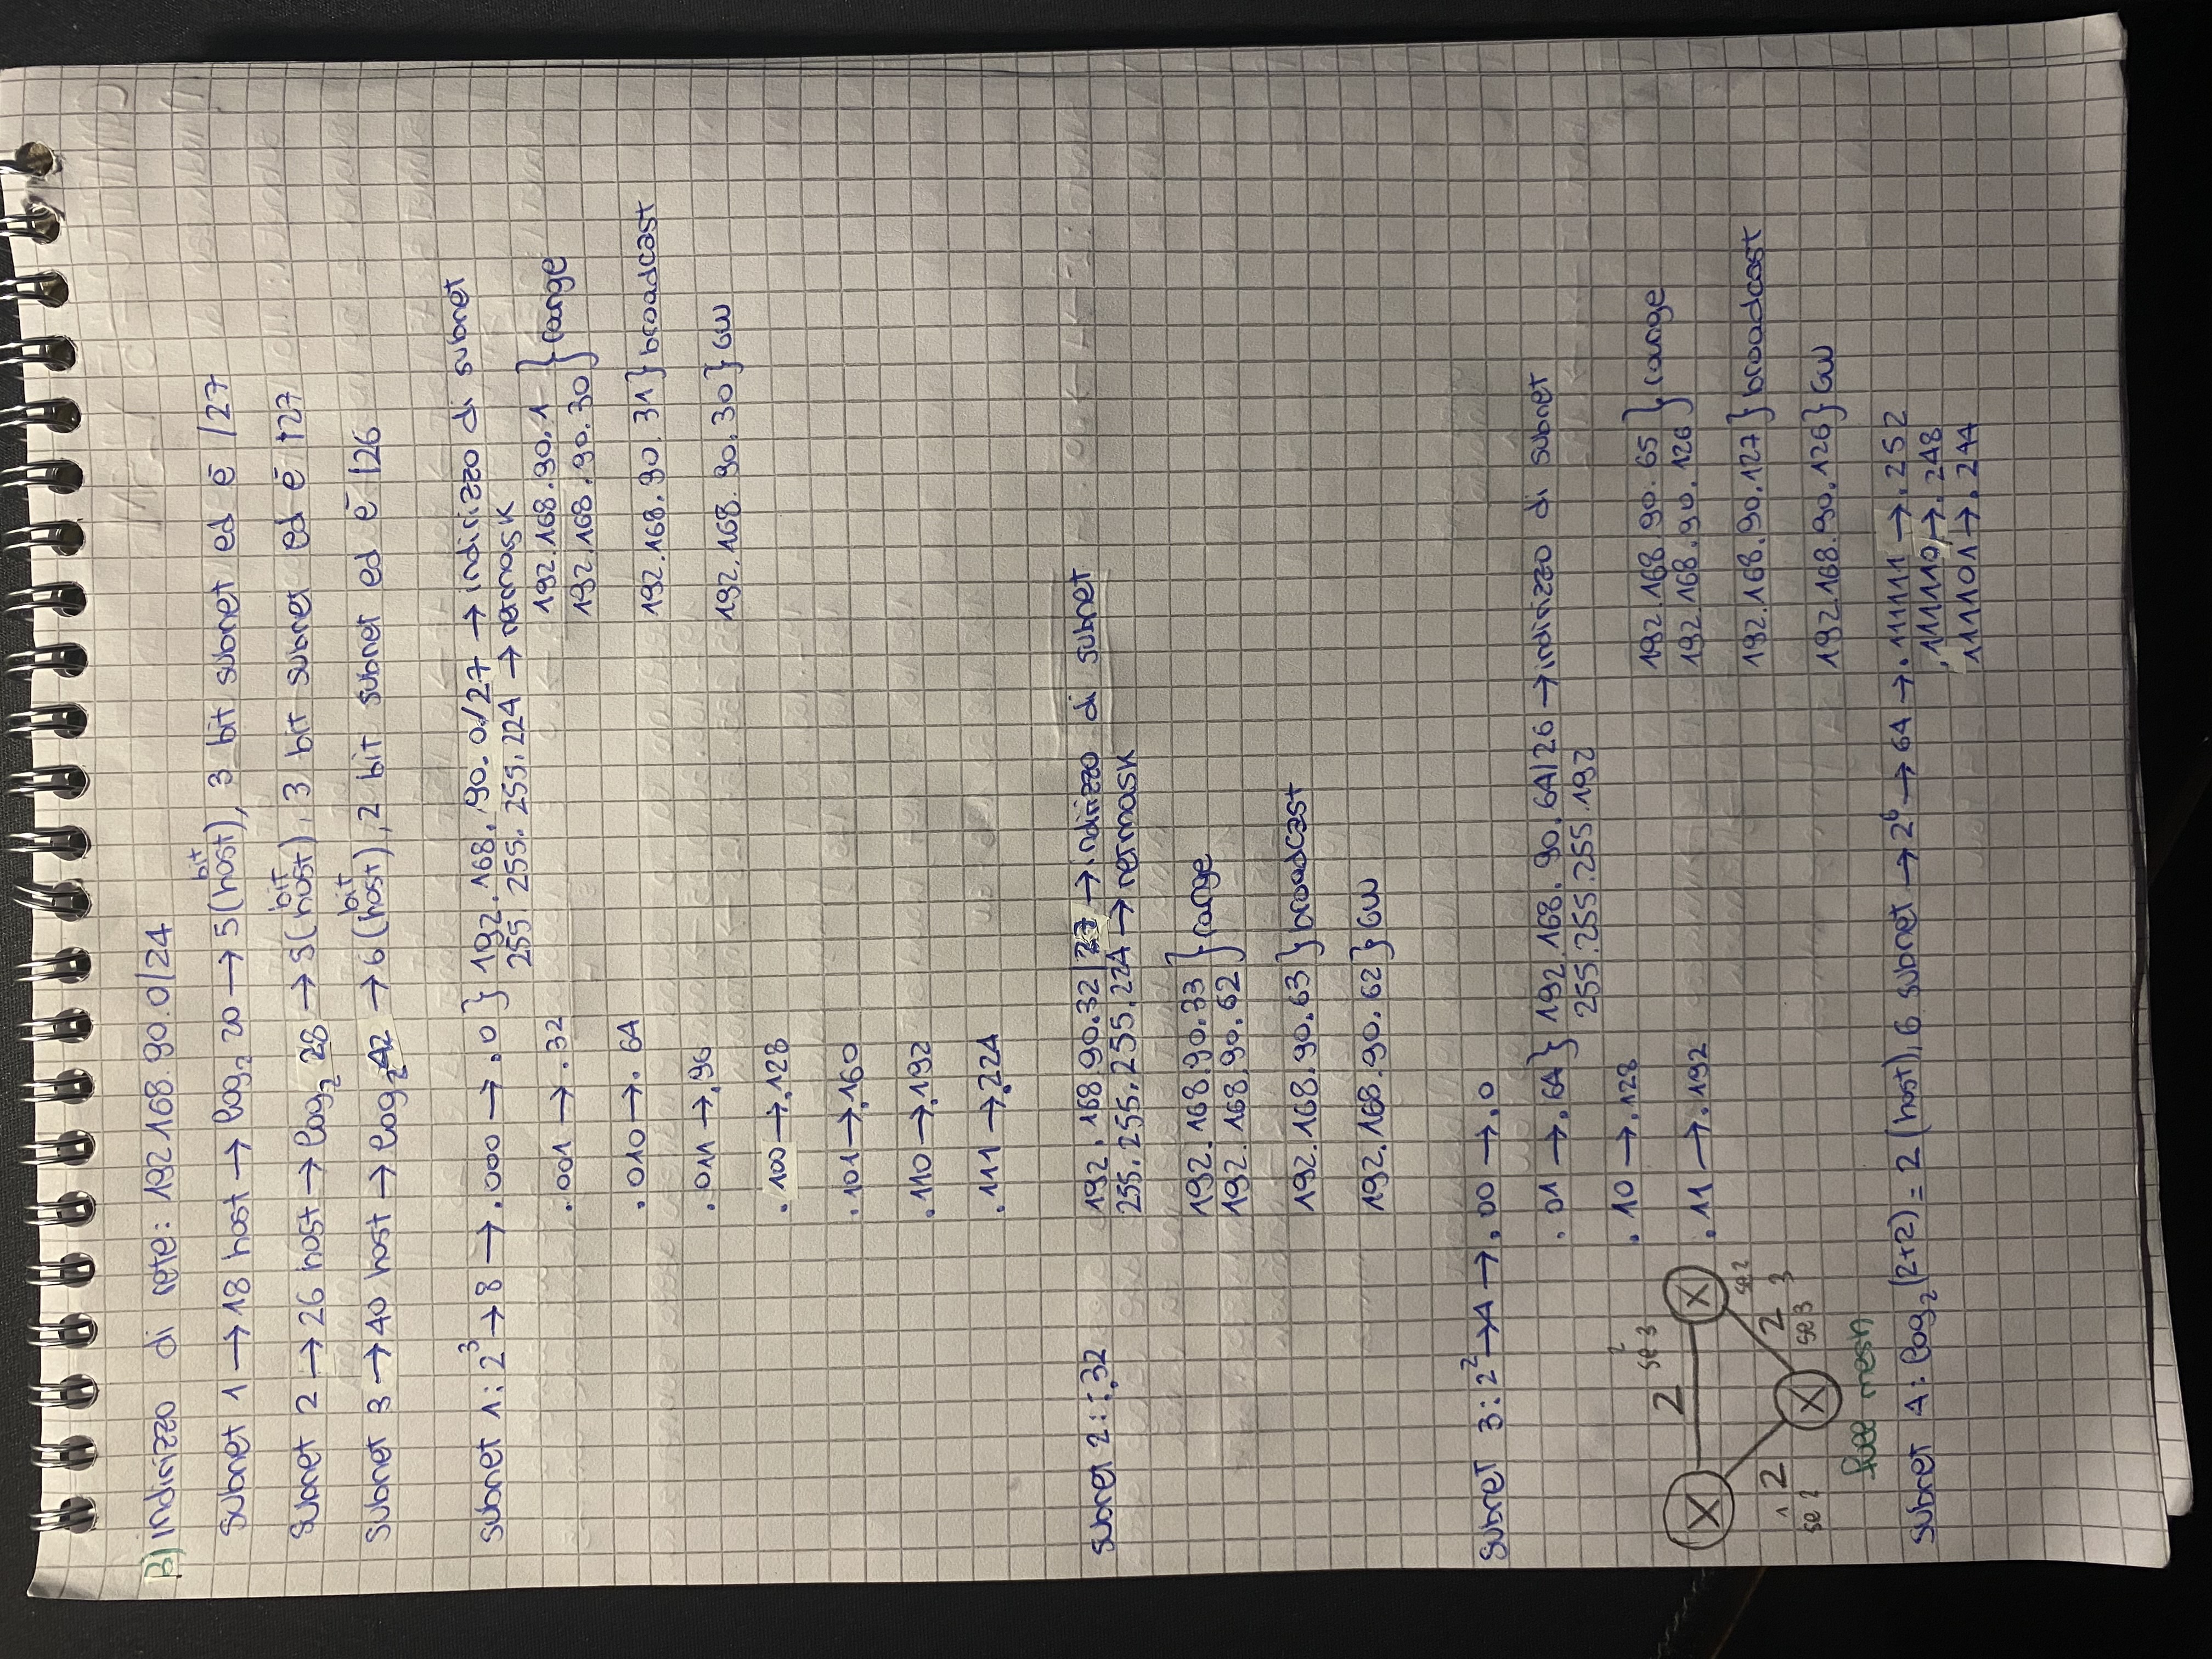 B) indirizzo di rete: 192.168.90.0/24
subnet 1 → 18 host → log₂ 20 → 5 (bit host), 3 bit subnet ed è /27
subnet 2 → 26 host → log₂ 28 → 5 (bit host), 3 bit subnet ed è /27
subnet 3 → 40 host → log₂ 42 → 6 (bit host), 2 bit subnet ed è /26
subnet 1: 2³ → 8 → .000 → .0 } 192.168.90.0/27 → indirizzo di subnet
255.255.255.224 → netmask
.001 → .32
192.168.90.1
192.168.90.30 } range
.010 → .64
192.168.90.31 } broadcast
.011 → .96
192.168.90.30 } GW
.100 → .128
.101 → .160
.110 → .192
.111 → .224
subnet 2: .32 192.168.90.32/27 → indirizzo di subnet
255.255.255.224 → netmask
192.168.90.33
192.168.90.62 } range
192.168.90.63 } broadcast
192.168.90.62 } GW
subnet 3: 2² → 4 → .00 → .0
.01 → .64 } 192.168.90.64/26 → indirizzo di subnet
255.255.255.192
.10 → .128
192.168.90.65
192.168.90.126 } range
.11 → .192
192.168.90.127 } broadcast
192.168.90.126 } GW
2
se 3
2
X X
se 2
1 2
se 2
2 3
se 3
X
full mesh
subnet 4: log₂ (2+2) = 2 (host), 6 subnet → 2⁶ → 64 → .111111 → .252
.111110 → .248
.111101 → .244